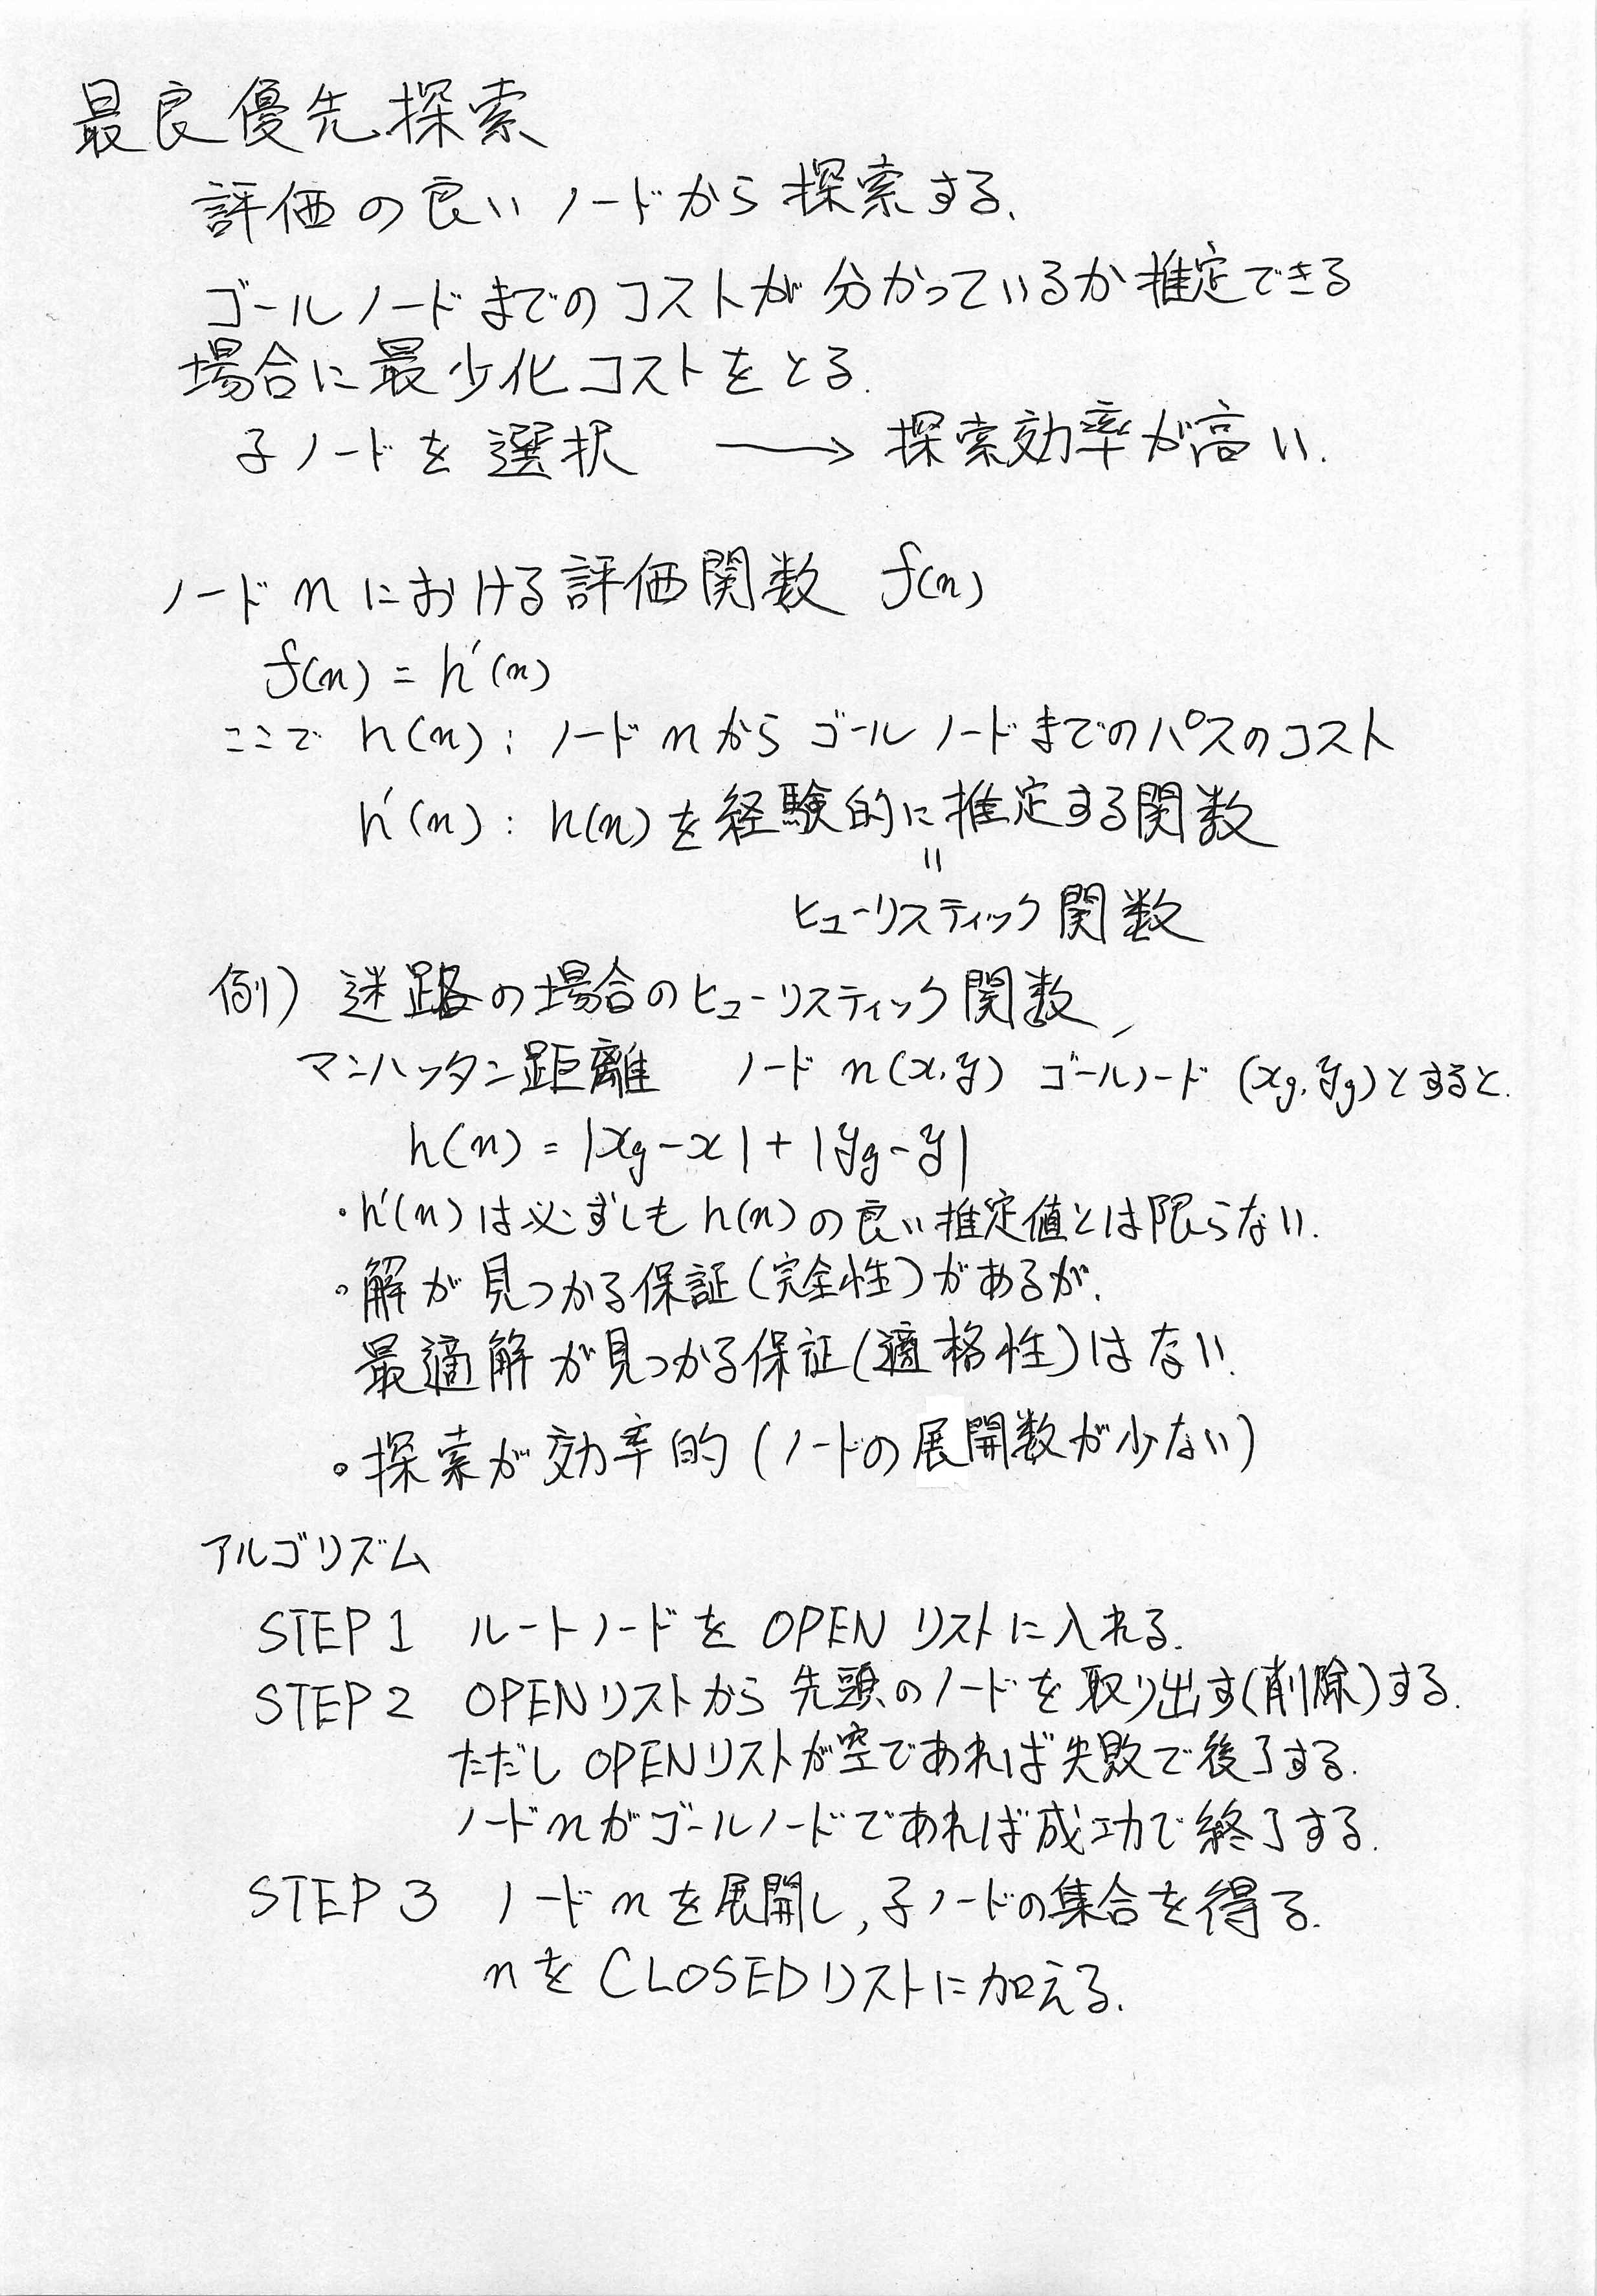 最良優先探索
評価の良いノードから探索する.
ゴールノードまでのコストが分かっているか推定できる
場合に最少化コストをとる.
子ノードを選択 → 探索効率が高い.
ノードnにおける評価関数 f(n)
f(n) = h'(n)
ここで h(n) : ノードnからゴールノードまでのパスのコスト
h'(n) : h(n)を経験的に推定する関数
=
ヒューリスティック関数
例) 迷路の場合のヒューリスティック関数,
マンハッタン距離 ノード n(x,y) ゴールノード (xg,yg)とすると.
h(n) = |xg-x| + |yg-y|
・h'(n)は必ずしもh(n)の良い推定値とは限らない.
・解が見つかる保証(完全性)があるが.
最適解が見つかる保証(適格性)はない.
・探索が効率的(ノードの展開数が少ない)
アルゴリズム
STEP1 ルートノードをOPENリストに入れる.
STEP2 OPENリストから先頭のノードを取り出す(削除)する.
ただしOPENリストが空であれば失敗で後了する.
ノードnがゴールノードであれば成功で終了する.
STEP3 ノードnを展開し,子ノードの集合を得る.
nをCLOSEDリストに加える.